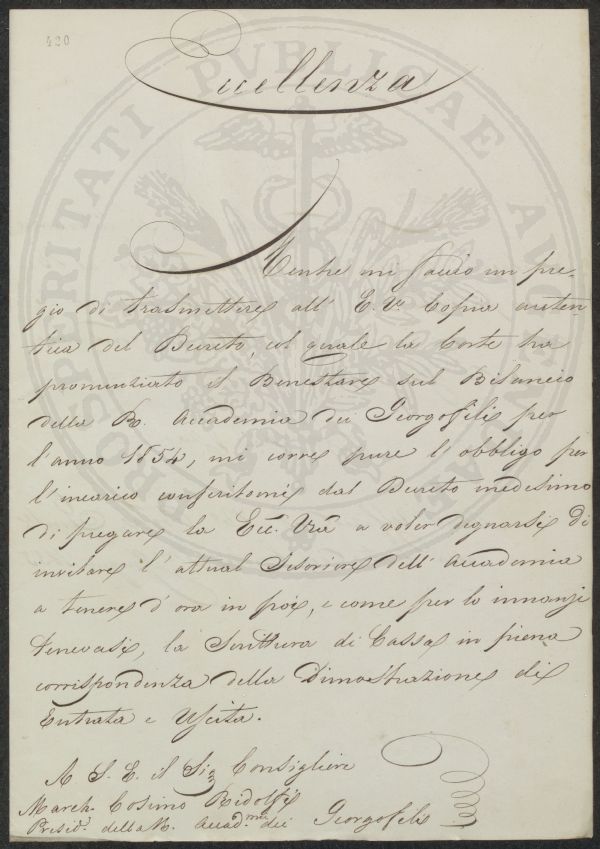 420
Eccellenza
Mentre mi faccio un pre-
gio di trasmettere all' E. V. Copia auten-
tica del Decreto, col quale la Corte ha
pronunziato il Benestare sul Bilancio
della R. Accademia dei Georgofili per
l'anno 1854, mi corre pure l'obbligo per
l'incarico conferitomi dal Decreto medesimo
di pregare la Ecc. Vra a voler degnarsi di
invitare l'attual Tesoriere dell'Accademia
a tenere d'ora in poi, e come per lo innanzi
tenevasi, la Scrittura di Cassa in piena
corrispondenza della Dimostrazione di
Entrata e Uscita.
A S. E. il Sig Consigliere
March. Cosimo Ridolfi
Presid.e della R. Accad.mia dei Georgofili
PROSPERITATI PVBLICAE AVGENDAE